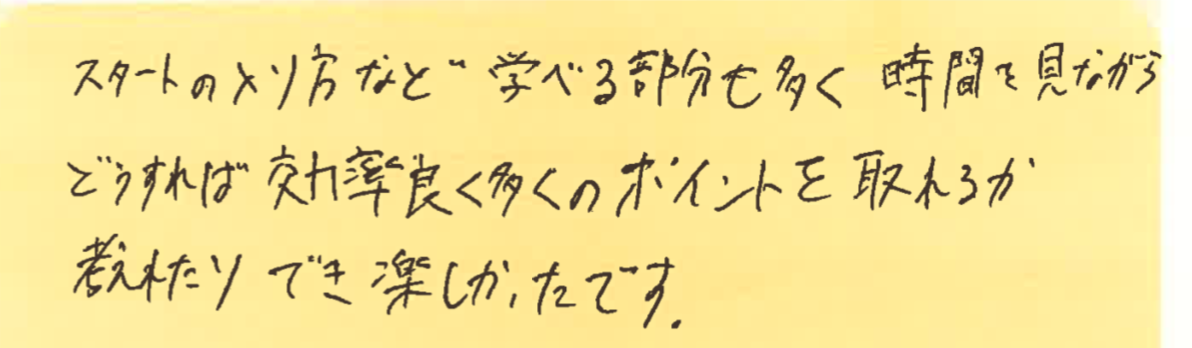 スタートのメリ方など学べる部分も多く 時間を見ながら
どうすれば効率良く多くのポイントを取れるか
考えれたりでき楽しかったです.